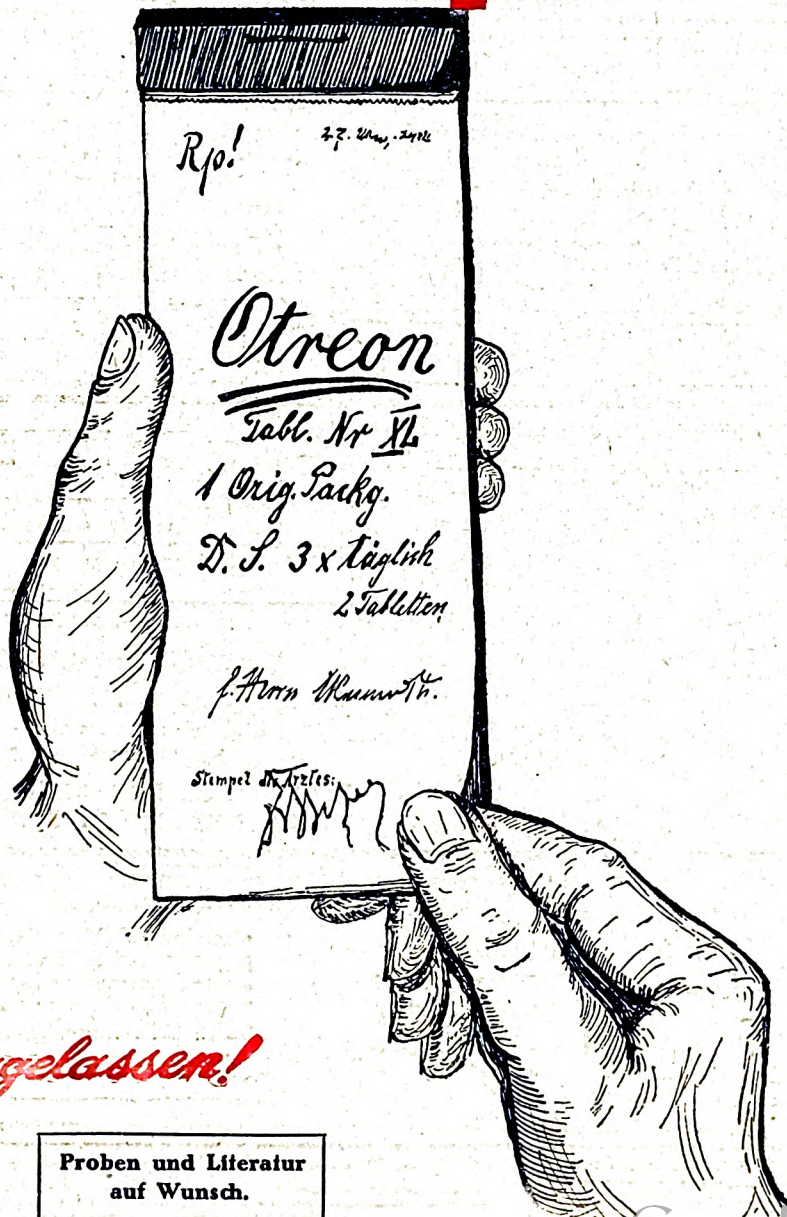 Rp!
Otreon
Tabl. Nr XL
1 Orig. Packg.
D. S. 3 x täglich
2 Tabletten
f. Herrn
Stempel des Arztes:
gelassen!
Proben und Literatur
auf Wunsch.